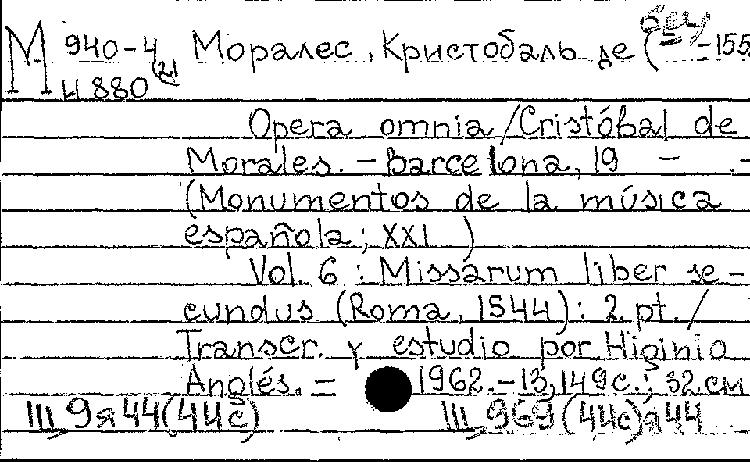 М 940-4 Моралес, Кристобаль де ( -155
И 880 (2)
Opera omnia/Cristóbal de
Morales. - Barcelona, 19 - .-
(Monumentos de la música
española; XXI )
Vol. 6 : Missarum liber se-
cundus (Roma, 1544): 2 pt./
Transcr. y estudio por Higinio
Anglés. = 1962.-13,149с.; 32.см
Щ9я44(44с) Щ969(44с)я44